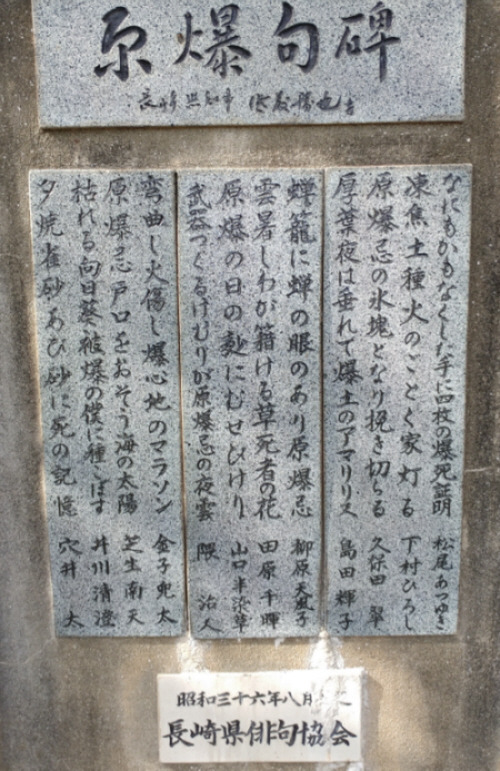 原爆句碑
長崎県知事 佐藤勝也書
なにもかもなくした手に四枚の爆死証明 松尾あつゆき
凍焦土種火のごとく家灯る 下村ひろし
原爆忌の氷塊となり挽き切らる 久保田 翠
厚葉夜は垂れて爆土のアマリリス 島田輝子
蝉籠に蝉の眼のあり原爆忌 柳原天風子
雲暑しわが籍ける草死者の花 田原千暉
原爆の日の麨にむせびけり 山口
武器つくるけむりが原爆忌の夜雲 隈 治人
彎曲し火傷し爆心地のマラソン 金子兜太
原爆忌戸口をおそう海の太陽 芝生南天
枯れる向日葵被爆の僕に種こぼす 井川清澄
夕焼雀砂あび砂に死の記憶 穴井 太
昭和三十六年八月
長崎県俳句協会